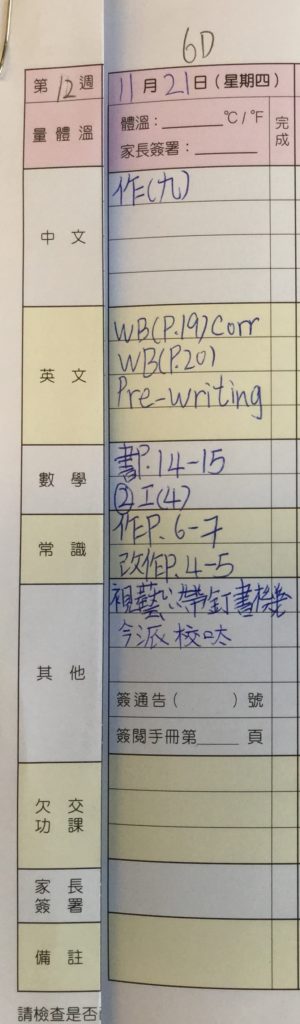 6D
第12週 11月21日(星期四)
量體溫 體溫：______°C/°F 完成
家長簽署：______
中文 作(九)
英文 WB(P.19)Corr
WB(P.20)
Pre-writing
數學 書P.14-15
②I(4)
常識 作P.6-7
改作P.4-5
其他 視藝:帶釘書機
今派校呔
簽通告( )號
簽閱手冊第____頁
欠交功課
家長簽署
備註
請檢查是否